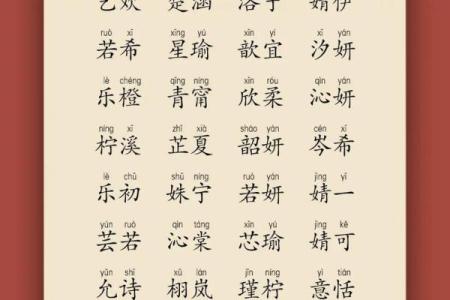 艺欢 楚涵 洛于 婧伊
ruò xī xīng yú xīn yí xī yán
若希 星瑜 歆宜 汐妍
lè chéng qīng níng xīn róu qìn yán
乐橙 青甯 欣柔 沁妍
níng xī zhǐ xià sháo yán cén xī
柠溪 芷夏 韶妍 岑希
lè chū shū níng ruò yán jìng yī
乐初 姝宁 若妍 婧一
yún ruò qìn táng xīn yú jìng kě
芸若 沁棠 芯瑜 婧可
yǔn shī xǔ lán jǐn níng yì tián
允诗 栩岚 瑾柠 意恬